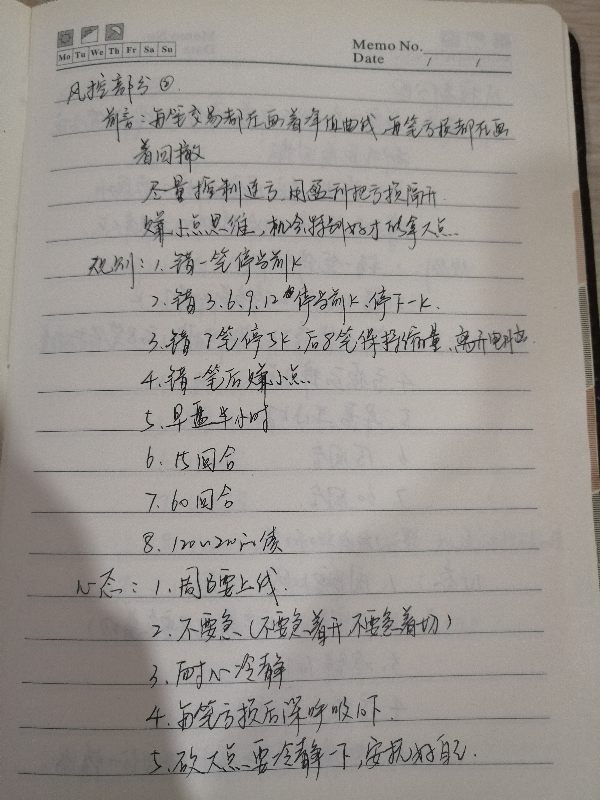 Mo Tu We Th Fr Sa Su
Memo No.
Date / /
风控部分②
前言：每笔交易都在画着净值曲线，每笔亏损都在画
着回撤
尽量控制连亏，用盈利把亏损隔开.
赚小点思维，机会特别好才能拿大点.
规则：1. 错一笔停当前K
2. 错3.6.9.12 停当前K.停下一K.
3. 错7笔停5K，后8笔保持缩量、离开电脑.
4. 错一笔后赚小点.
5. 早盘半小时
6. 15回合
7. 60回合
8.
心态：1. 周日要上线.
2. 不要急（不要急着开，不要急着切）
3. 耐心冷静
4. 每笔亏损后深呼吸10下.
5. 砍大点要冷静一下，安抚好自己.